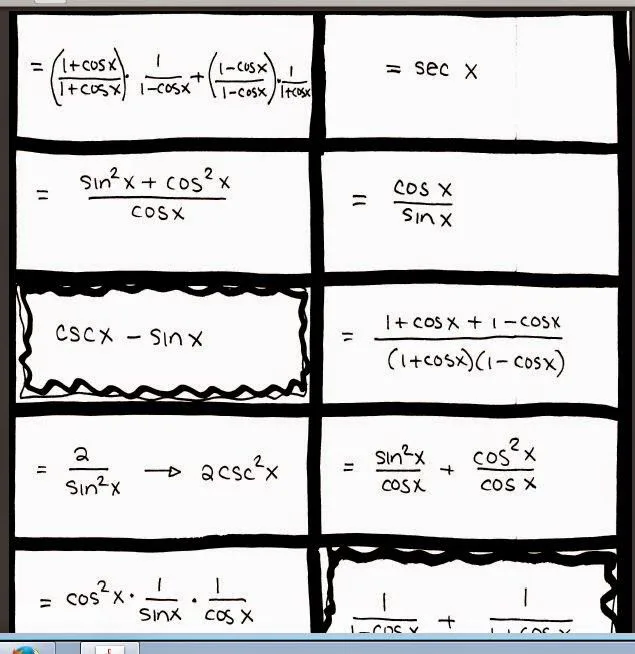 = ((1+cosx)/(1+cosx)) · 1/(1-cosx) + ((1-cosx)/(1-cosx)) · 1/(1+cosx)
= sec x
= (sin²x + cos²x)/cosx
= cos x/sin x
cscx - sin x
= (1+cosx + 1-cosx)/((1+cosx)(1-cosx))
= 2/sin²x → 2csc²x
= sin²x/cosx + cos²x/cos x
= cos²x · 1/sinx · 1/cos x
1/(1-cosx) + 1/(1+cosx)